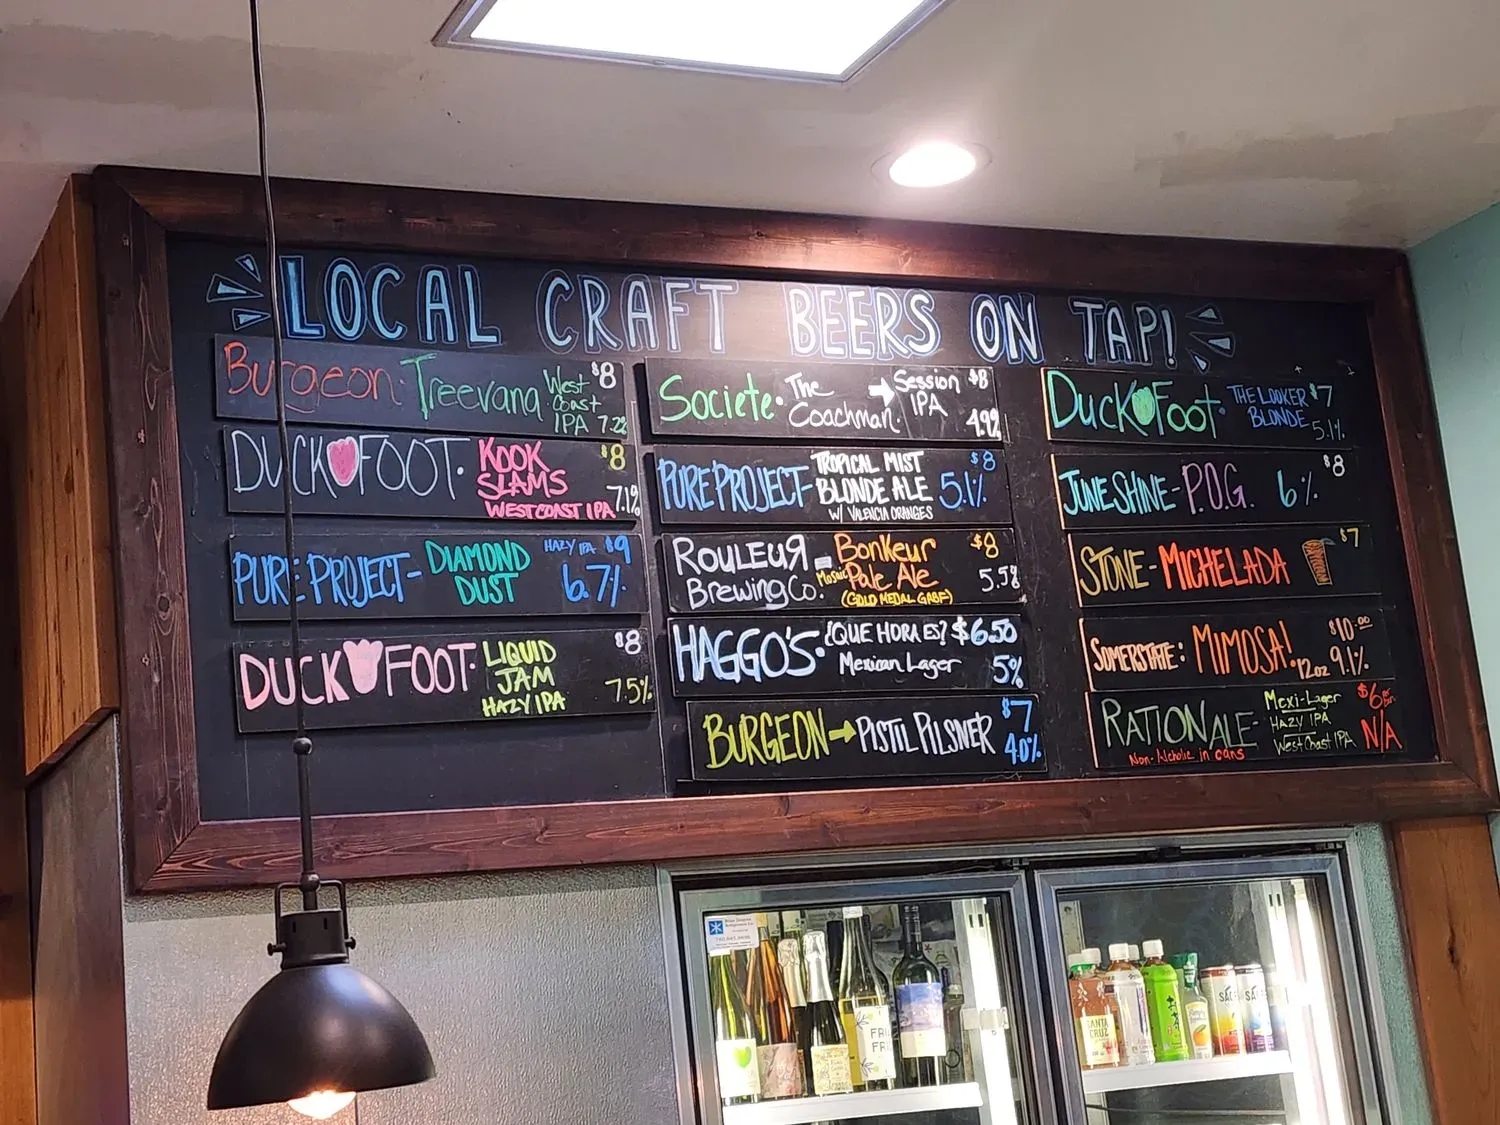 LOCAL CRAFT BEERS ON TAP!
Burgeon · Treevana West Coast IPA $8
DUCK FOOT · KOOK SLAMS $8
WEST COAST IPA 7.1%
PURE PROJECT - DIAMOND DUST HAZY IPA $9
6.7%
DUCK FOOT · LIQUID JAM $8
HAZY IPA 7.5%
Societe · The Coachman. Session IPA $8
4.9%
PURE PROJECT - TROPICAL MIST $8
BLONDE ALE 5.1%
W/ VALENCIA ORANGES
ROULEUR = Bonkeur $8
Brewing Co. Mosaic Pale Ale 5.5%
(GOLD MEDAL GABF)
HAGGO'S · ¿QUE HORA ES? $6.50
Mexican Lager 5%
BURGEON PISTIL PILSNER $7
4.0%
DUCK FOOT · THE LOOKER $7
BLONDE 5.1%
JUNESHINE - P.O.G. 6% $8
STONE - MICHELADA $7
SOMERSTATE: MIMOSA! $10.00
12oz 9.1%
RATIONALE - Mexi-Lager $6
HAZY IPA
West Coast IPA N/A
Non-Alcholic in cans
SANTA
CRUZ